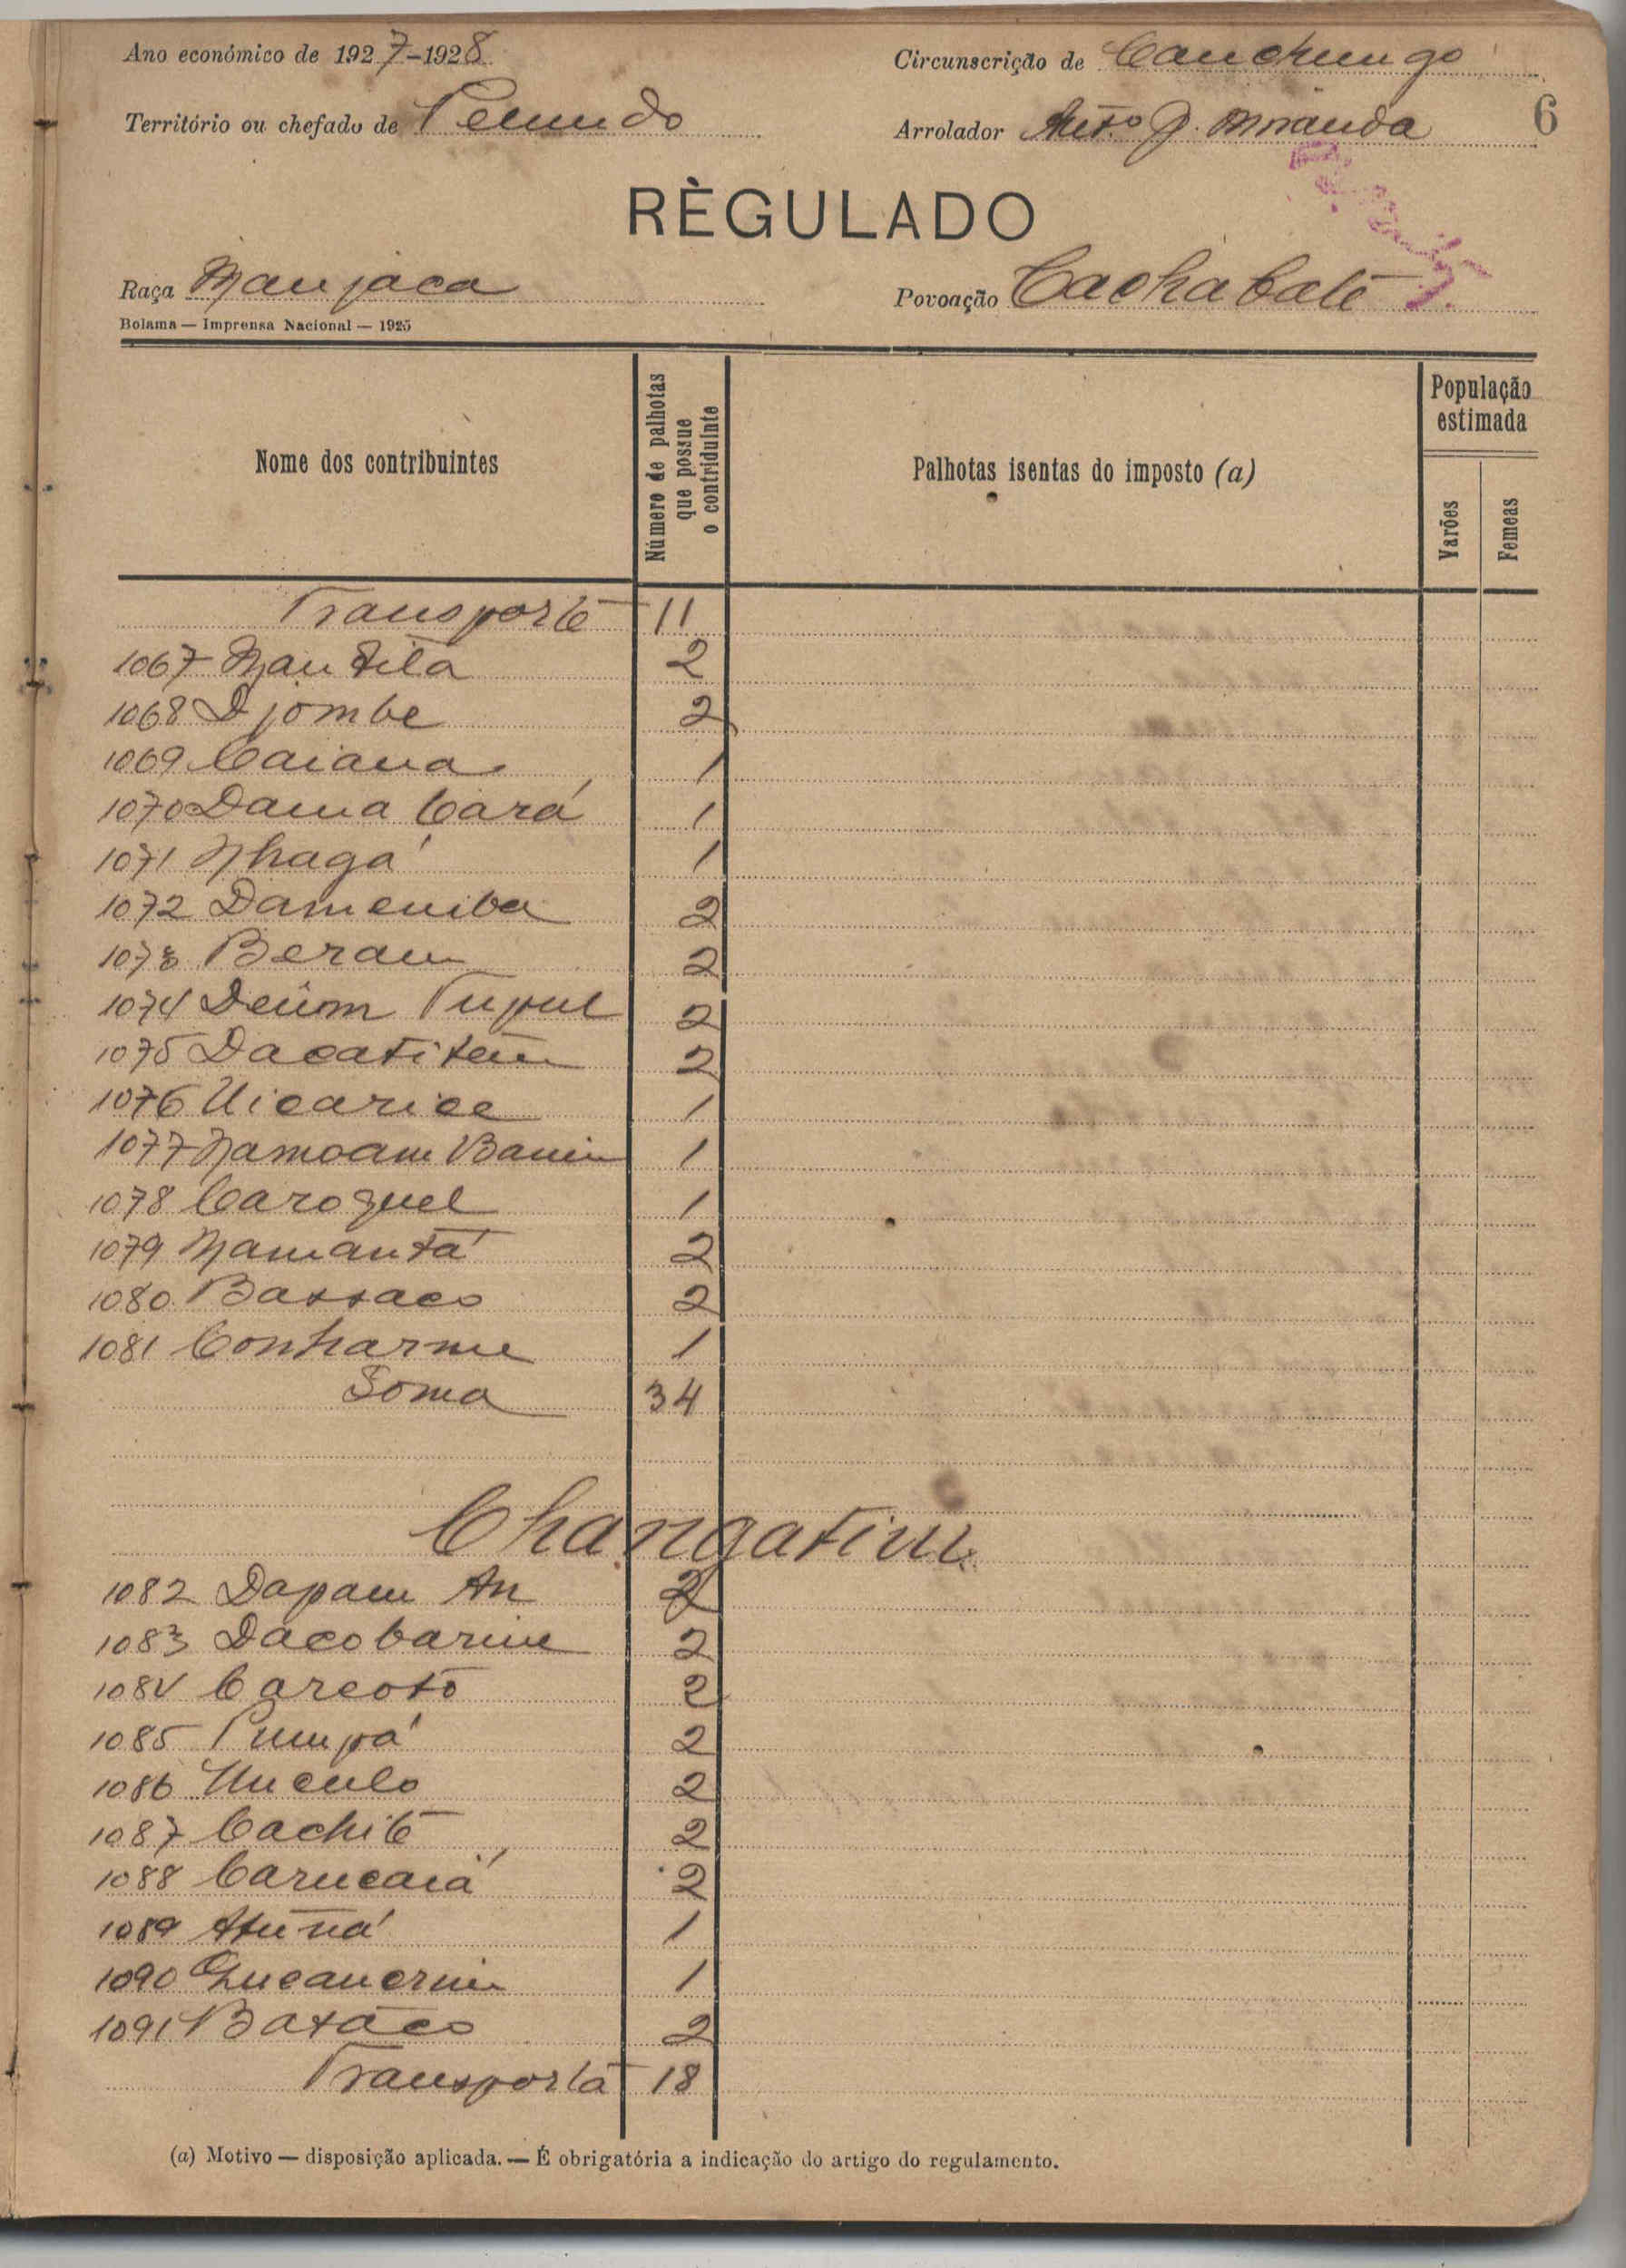 Ano económico de 1927-1928
Circunscrição de Canchungo
6
Território ou chefado de Pecundo
Arrolador Antº J. Miranda
RÈGULADO
Raça Manjaca
Povoação Cachabate
Bolama — Imprensa Nacional — 1925
Nome dos contribuintes
Número de palhotas que possue o contriduinte
Palhotas isentas do imposto (a)
População estimada
Varões
Femeas
Transporte 11
1067 Nan tila 2
1068 Djombe 2
1069 Caiana 1
1070 Dama Cará 1
1071 Nhagá 1
1072 Damemba 2
1073 Beram 2
1074 Deum Pupul 2
1075 Dacatitem 2
1076 Uicarice 1
1077 Namoam Banin 1
1078 Caroquel 1
1079 Namantá 2
1080 Bassaco 2
1081 Conharme 1
Soma 34
Changatim
1082 Dapam An 2
1083 Dacobarim 2
1084 Carcoto 2
1085 Pumpá 2
1086 Unculo 2
1087 Cachite 2
1088 Carucaiá 2
1089 Atuná 1
1090 1
1091 Bataco 2
Transporta 18
(a) Motivo — disposição aplicada. — É obrigatória a indicação do artigo do regulamento.